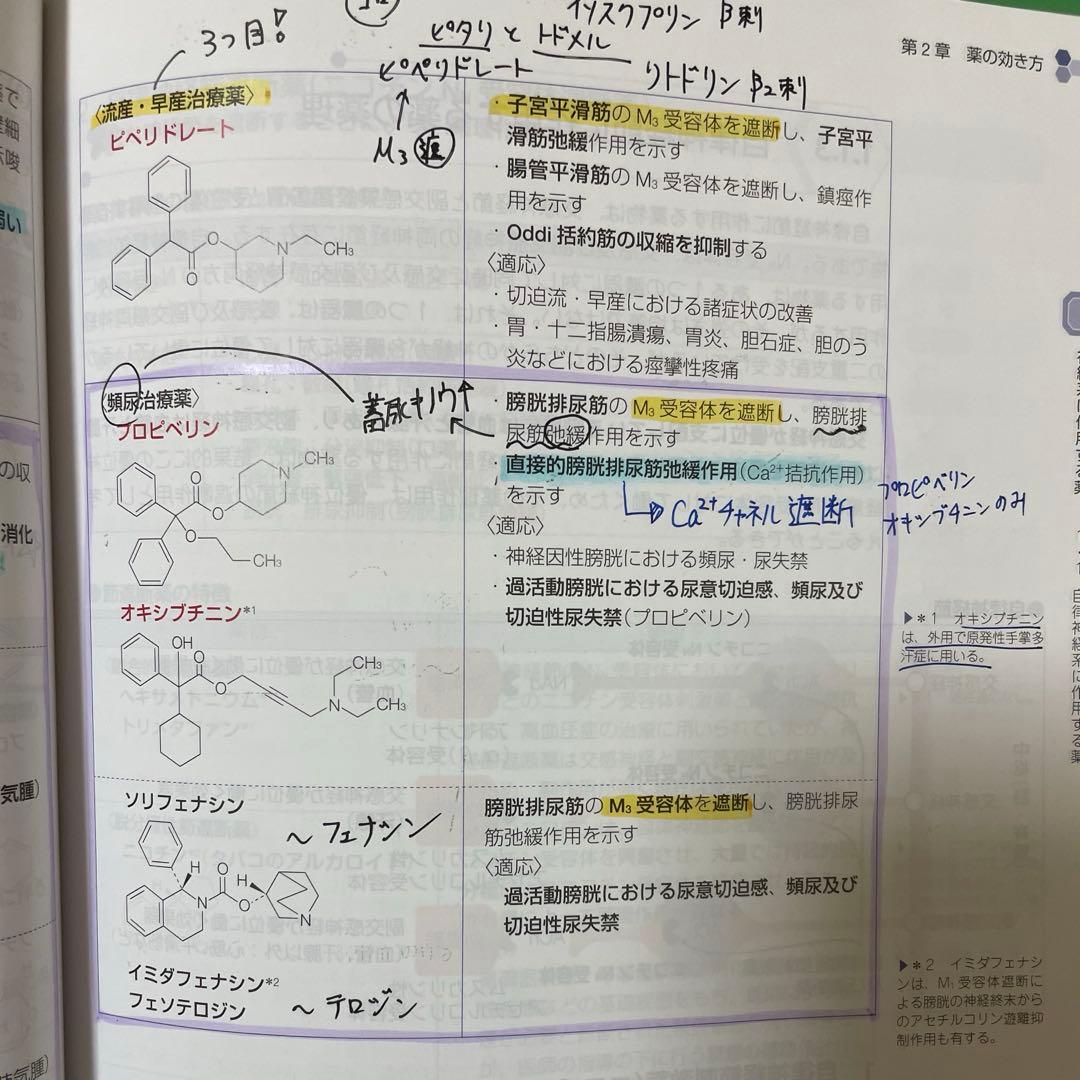 イソスクプリン β刺
ピタリ と トドメル
3つ目!
ピペリドレート
リトドリン β2刺
M3 遮
第2章 薬の効き方
〈流産・早産治療薬〉
ピペリドレート
O
O
N
CH3
・子宮平滑筋のM3受容体を遮断し、子宮平
滑筋弛緩作用を示す
・腸管平滑筋のM3受容体を遮断し、鎮痙作
用を示す
・Oddi括約筋の収縮を抑制する
〈適応〉
・切迫流・早産における諸症状の改善
・胃・十二指腸潰瘍、胃炎、胆石症、胆のう
炎などにおける痙攣性疼痛
頻尿治療薬〉
プロピベリン
蓄尿キノウ↑
N
CH3
O
O
O
CH3
・膀胱排尿筋のM3受容体を遮断し、膀胱排
尿筋弛緩作用を示す
・直接的膀胱排尿筋弛緩作用(Ca2+拮抗作用)
を示す
Ca2+チャネル 遮断
プロピベリン
オキシブチニンのみ
〈適応〉
・神経因性膀胱における頻尿・尿失禁
・過活動膀胱における尿意切迫感、頻尿及び
切迫性尿失禁(プロピベリン)
オキシブチニン*1
OH
O
O
N
CH3
CH3
▶*1 オキシブチニン
は、外用で原発性手掌多
汗症に用いる。
ソリフェナシン
〜フェナシン
H
O
H
N
O
N
膀胱排尿筋のM3受容体を遮断し、膀胱排尿
筋弛緩作用を示す
〈適応〉
過活動膀胱における尿意切迫感、頻尿及び
切迫性尿失禁
イミダフェナシン*2
フェソテロジン
〜テロジン
▶*2 イミダフェナシ
ンは、M1受容体遮断に
よる膀胱の神経終末から
のアセチルコリン遊離抑
制作用も有する。
の収
消化
気腫)
自律神経系に作用する薬